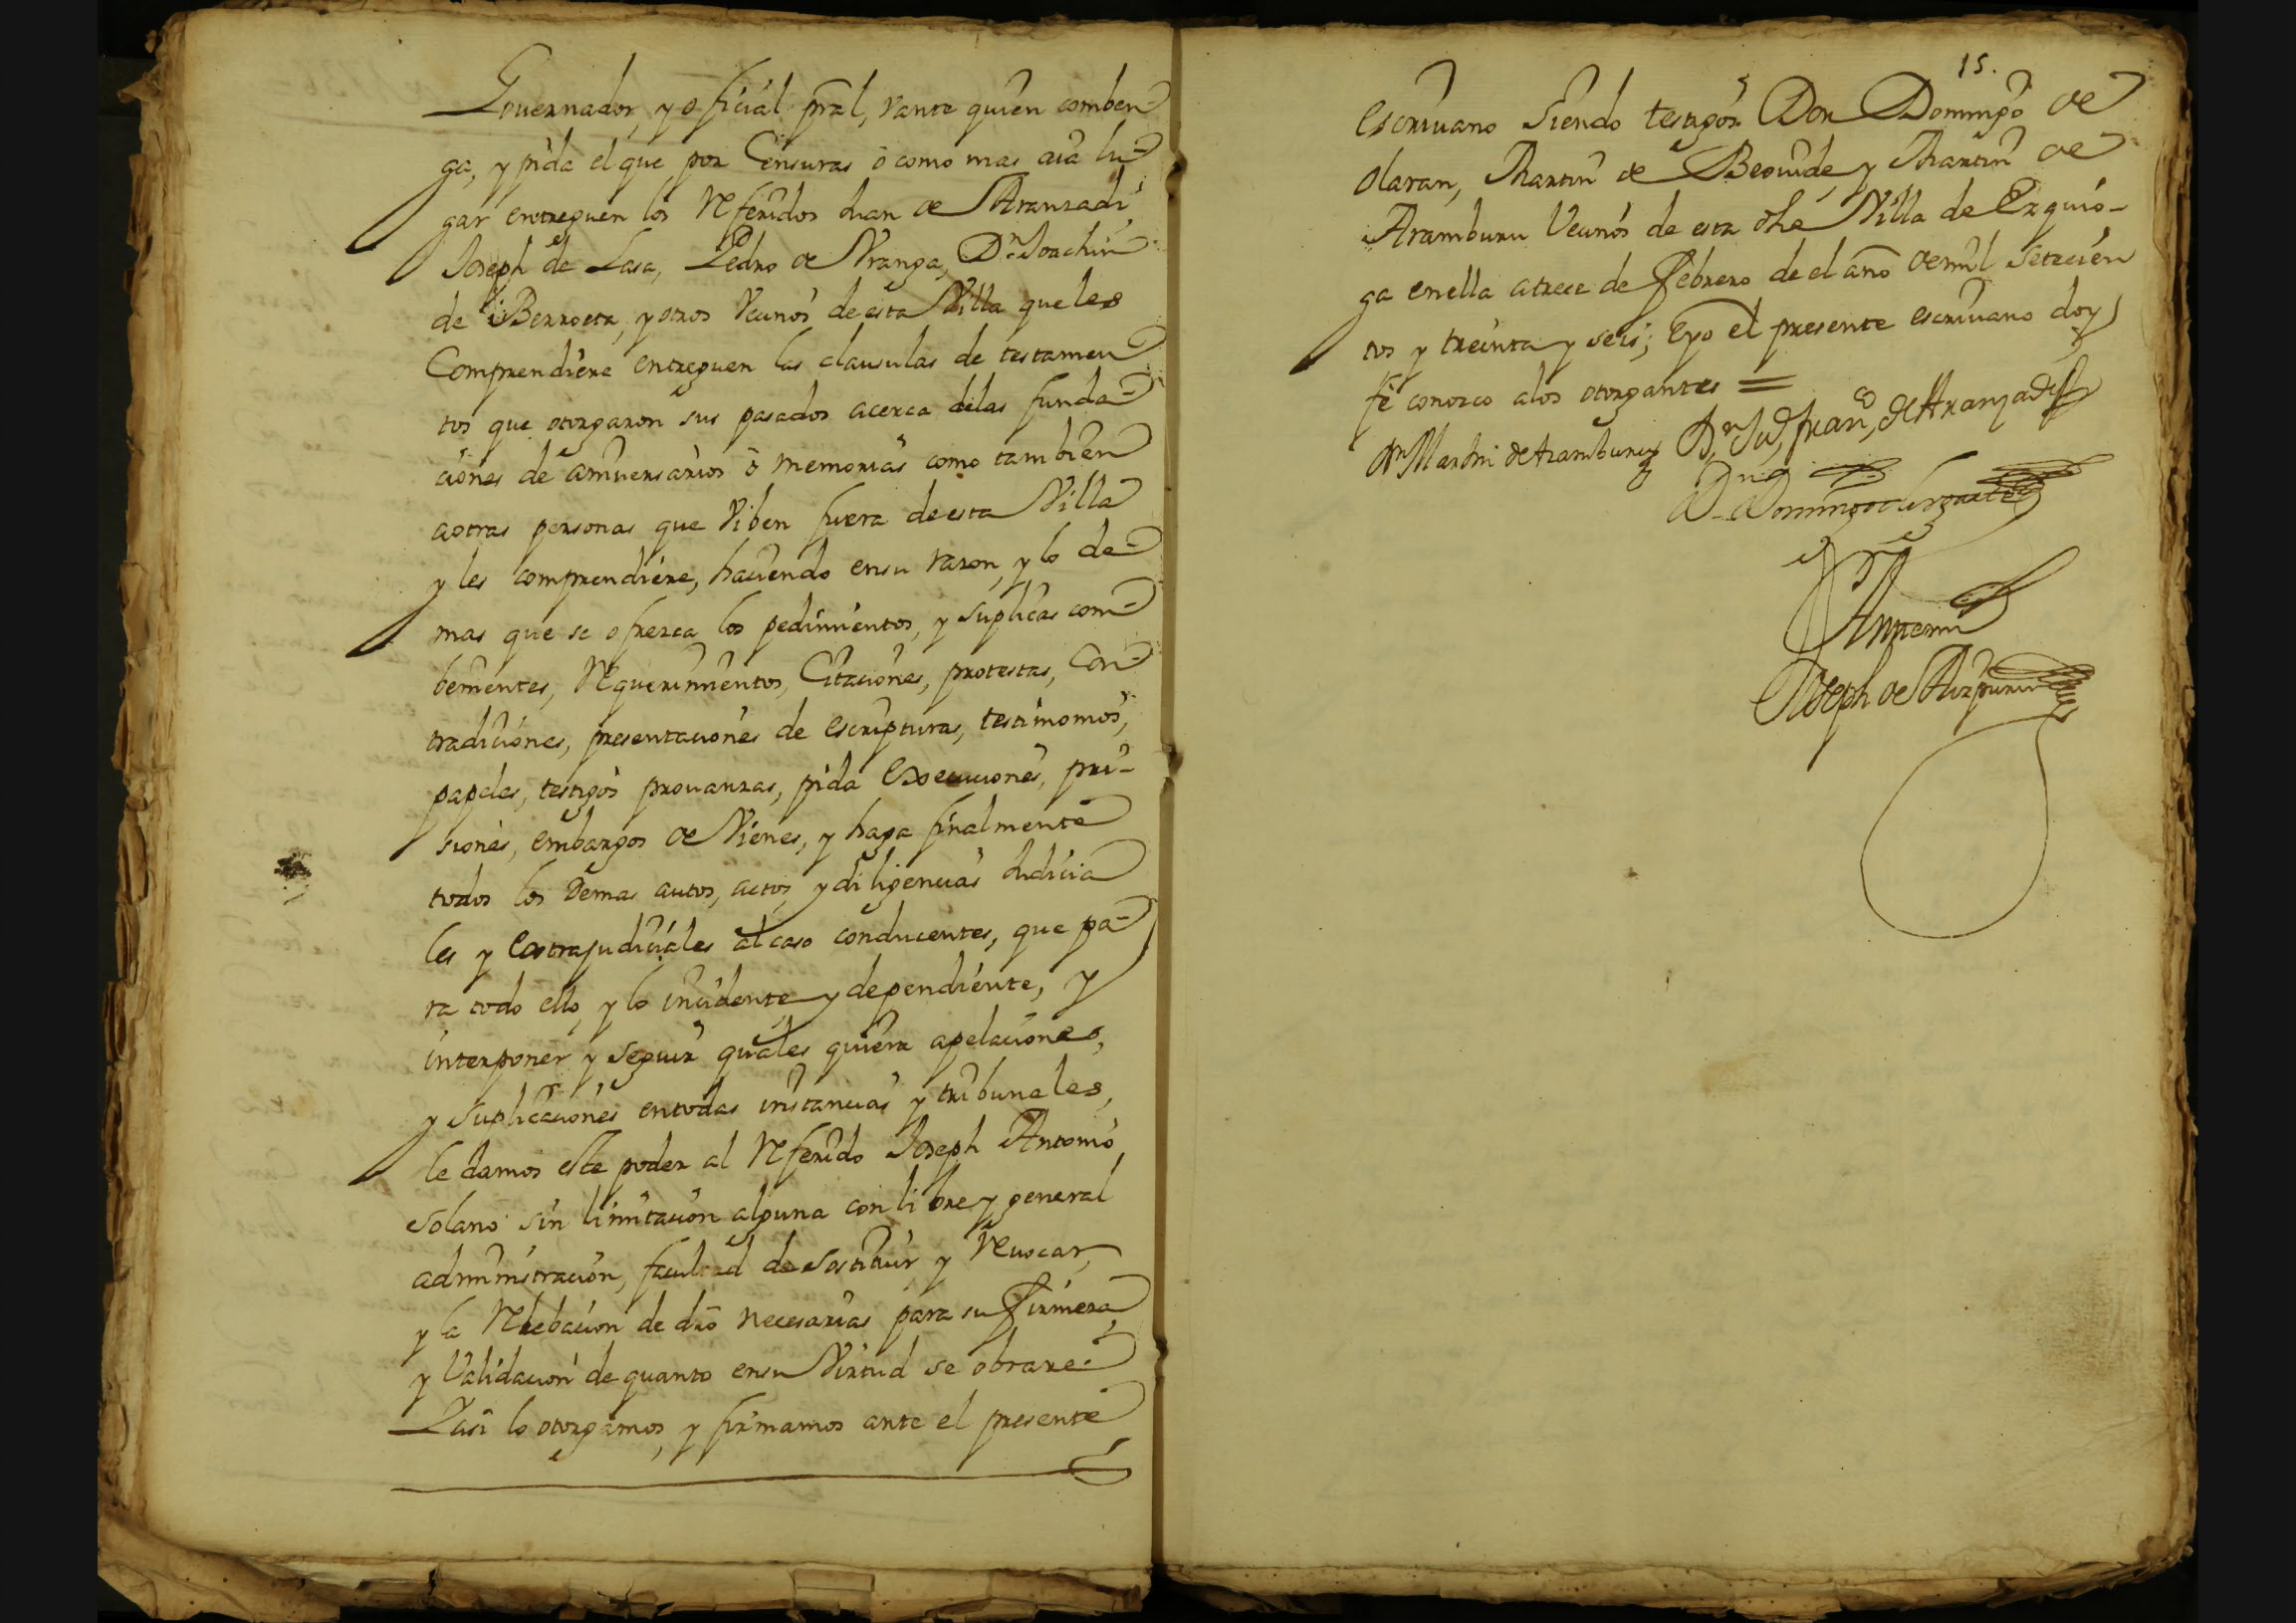 Governador, y oficial pral, y ante quien comben
ga, y pida el que por Censuras ô como mas aia lu=
gar entreguen los Referidos Juan de Aranzadi,
Joseph de Lasa, Pedro de Vranga, Dn Joachin
de Berroeta, y otros Vecinos de esta Villa que les
Comprendiere entreguen las clausulas de testamen
tos que otorgaron sus pasados acerca delas funda=
ciones de aniversarios ô memorias como tambien
aotras personas que Viben fuera de esta Villa
y les comprendiere, haciendo ensu razon, y lo de=
mas que se ofrezca los pedimientos, y suplicas com=
benientes, Requerimientos, Citaciones, protestas, Con=
tradiciones, presentaciones de escripturas, testimonios,
papeles, testigos provanzas, pida Execuciones, pri=
siones, embargos de Vienes, y haga finalmente
todos los demas autos, actos, y diligencias Judicia
les y extrajudiciales al caso conducentes, que pa=
ra todo ello, y lo incidente y dependiente, y
interponer y seguir quales quiera apelaciones,
y suplicaciones entodas instancias y tribunales,
le damos este poder al Referido Joseph Antonio
Solano sin limitacion alguna con libre y general
administracion, facultad de sostituir y Revocar,
y la Relebacion de dro necesarias para su firmeza
y Validacion de quanto ensu Virtud se obrare=
Yasi lo otorgamos, y firmamos ante el presente
15.
escrivano siendo testigos Don Domingo de
Olaran, Martin de Beovide y Martin de
Aramburu Vecinos de esta dha Villa de Ezquio-
ga enella atrece de Febrero de el año demil setecien
tos y treinta y seis; Eyo el presente escrivano doy
feê conozco alos otorgantes =
Dn Martin de Aramburu Dn Jud franco de Aranzadi
Dn Domingo de
Antemi
Joseph de Aizpuru